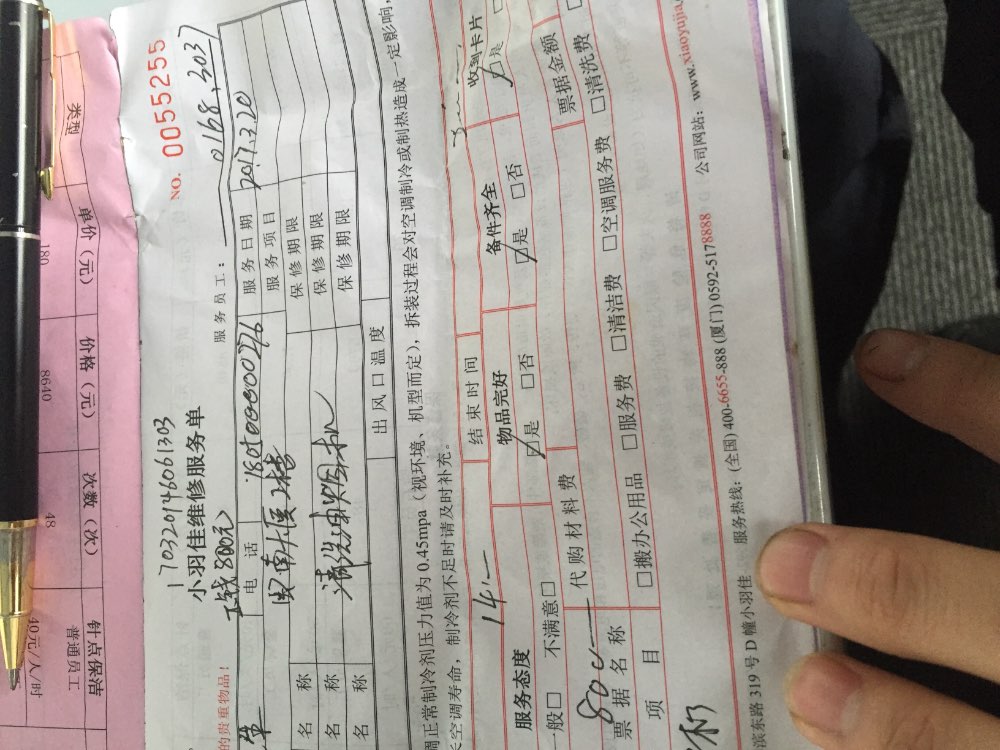 NO. 0055255
170320146061303
小羽佳维修服务单
服务员工： 0168，3037
的贵重物品！
电 话
服务日期 2017.3.20
服务项目
名 称 保修期限
名 称 保修期限
名 称 保修期限
清洗
出风口温度
调正常制冷剂压力值为 0.45mpa（视环境、机型而定），拆装过程会对空调制冷或制热造成一定影响，
空调寿命，制冷剂不足时请及时补充。
14
结束时间
服务态度 物品完好 备件齐全 收到卡片
一般□ 不满意□ □是 □否 □是 □否 □是
800 代购材料费
票据名称 票据金额
项 目 □搬办公用品 □服务费 □清洁费 □空调服务费 □清洗费
滨东路 319 号 D 幢小羽佳 服务热线：(全国) 400-6655-888 (厦门) 0592-5178888 公司网站：www.xiaoyujia.
类型 单价（元） 价格（元） 次数（次） 针点保洁
普通员工
180 8640 48 40元/人/时